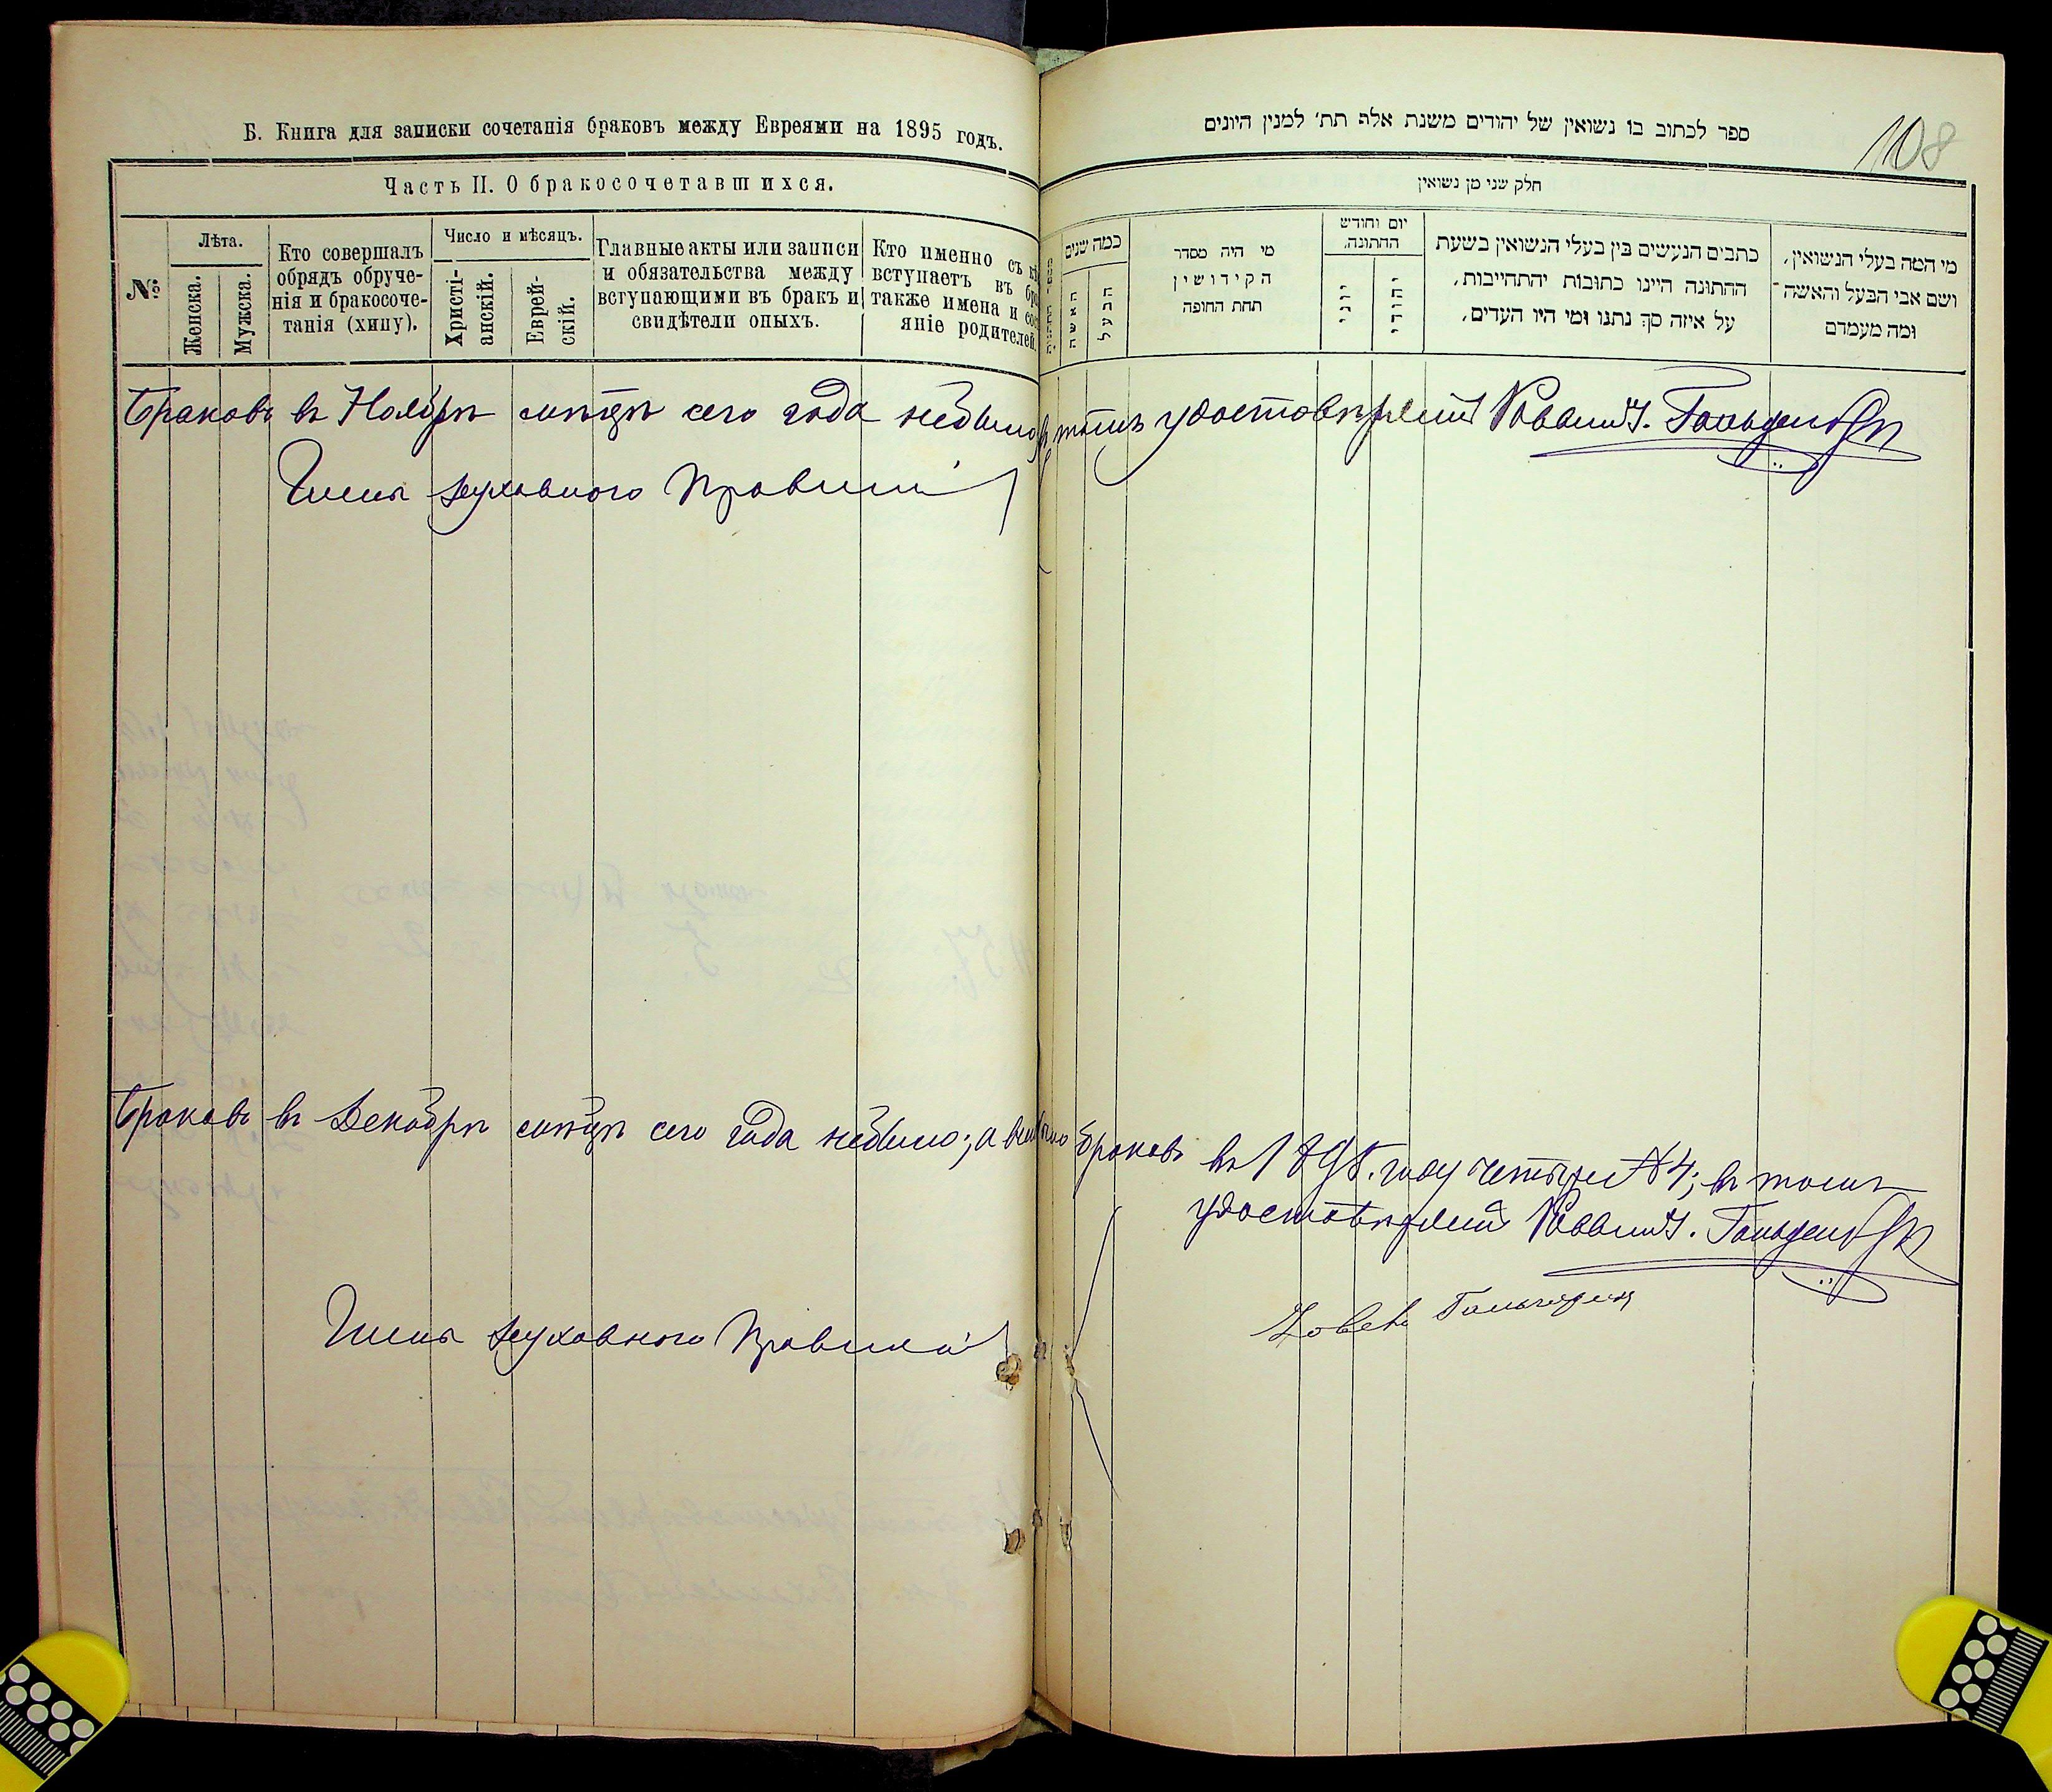 Б. Книга для записки сочетанія браковъ между Евреями на 1895 годъ.
Часть II. О бракосочетавшихся.
№
Лѣта.
Женска.
Мужска.
Кто совершалъ
обрядъ обруче-
нія и бракосоче-
танія (хипу).
Число и мѣсяцъ.
Христі-
анскій.
Еврей-
скій.
Главные акты или записи
и обязательства между
вступающими въ бракъ и
свидѣтели оныхъ.
Кто именно съ
вступаетъ въ
также имена и
яніе родителей.
ספר לכתוב בו נשואין של יהודים משנת אלף תת׳ למנין היונים
108
חלק שני מן נשואין
כמה שנים
האשה
הבעל
מי היה מסדר
הקידושין
תחת החופה
יום וחודש
החתונה.
יוני
יהודי
כתבים הנעשים בין בעלי הנשואין בשעת
החתונה היינו כתובות יהתחייבות,
על איזה סך נתנו ומי היו העדים,
מי המה בעלי הנשואין,
ושם אבי הבעל והאשה־
ומה מעמדם
Браковъ въ Ноябрѣ мѣсяцѣ сего года небыло въ томъ удостовѣряемъ Раввинъ
Члены духовнаго Правленія
Браковъ въ Декабрѣ мѣсяцѣ сего года небыло; а всего было браковъ въ 1895. году четыре №4; въ томъ
удостовѣряемъ Раввинъ
Члены духовнаго Правленія